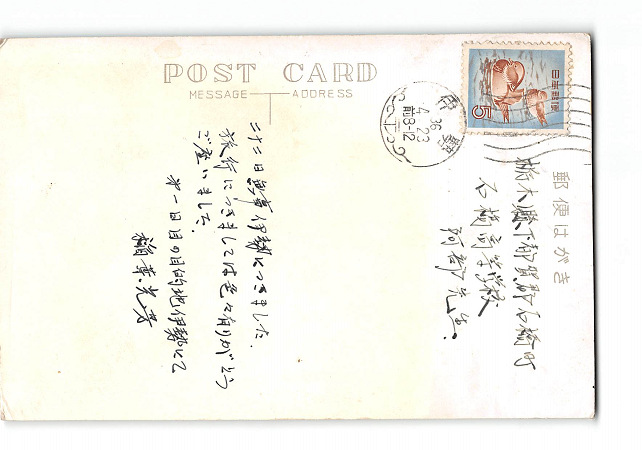 POST CARD
MESSAGE
ADDRESS
日本郵便
5
伊勢
36
4 23
前8-12
郵便はがき
栃木県下都賀郡石橋町
石橋高等学校
阿部先生
二十二日無事伊勢につきました。
旅行につきましては色々有りがとう
ございました。
才一日目の目的地伊勢にて